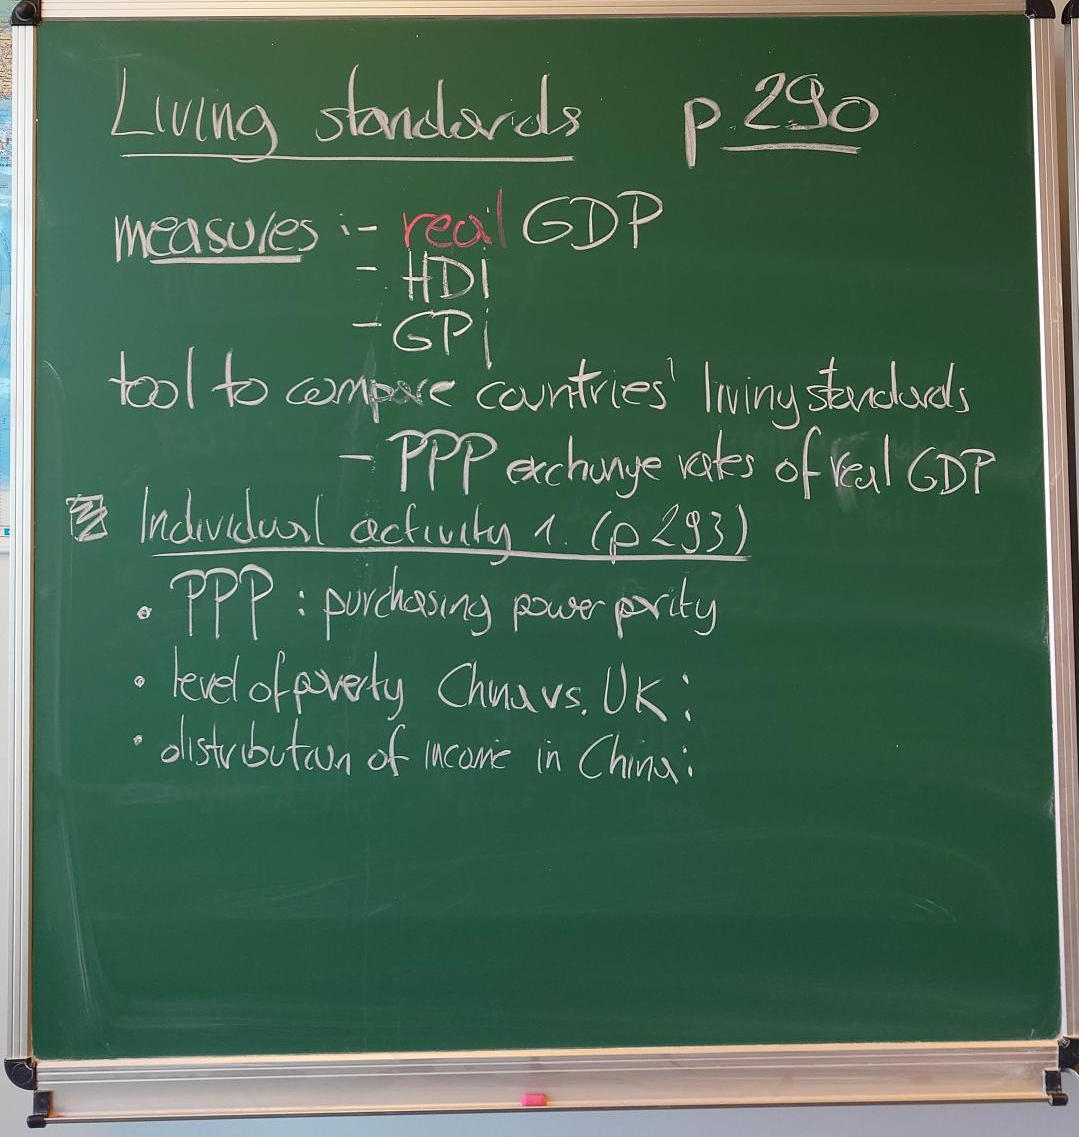 Living standards p 290
measures :- real GDP
- HDI
- GPI
tool to compare countries' living standards
- PPP exchange rates of real GDP
Individual activity 1. (p 293)
• PPP : purchasing power parity
• level of poverty China vs. UK:
• distribution of income in China: